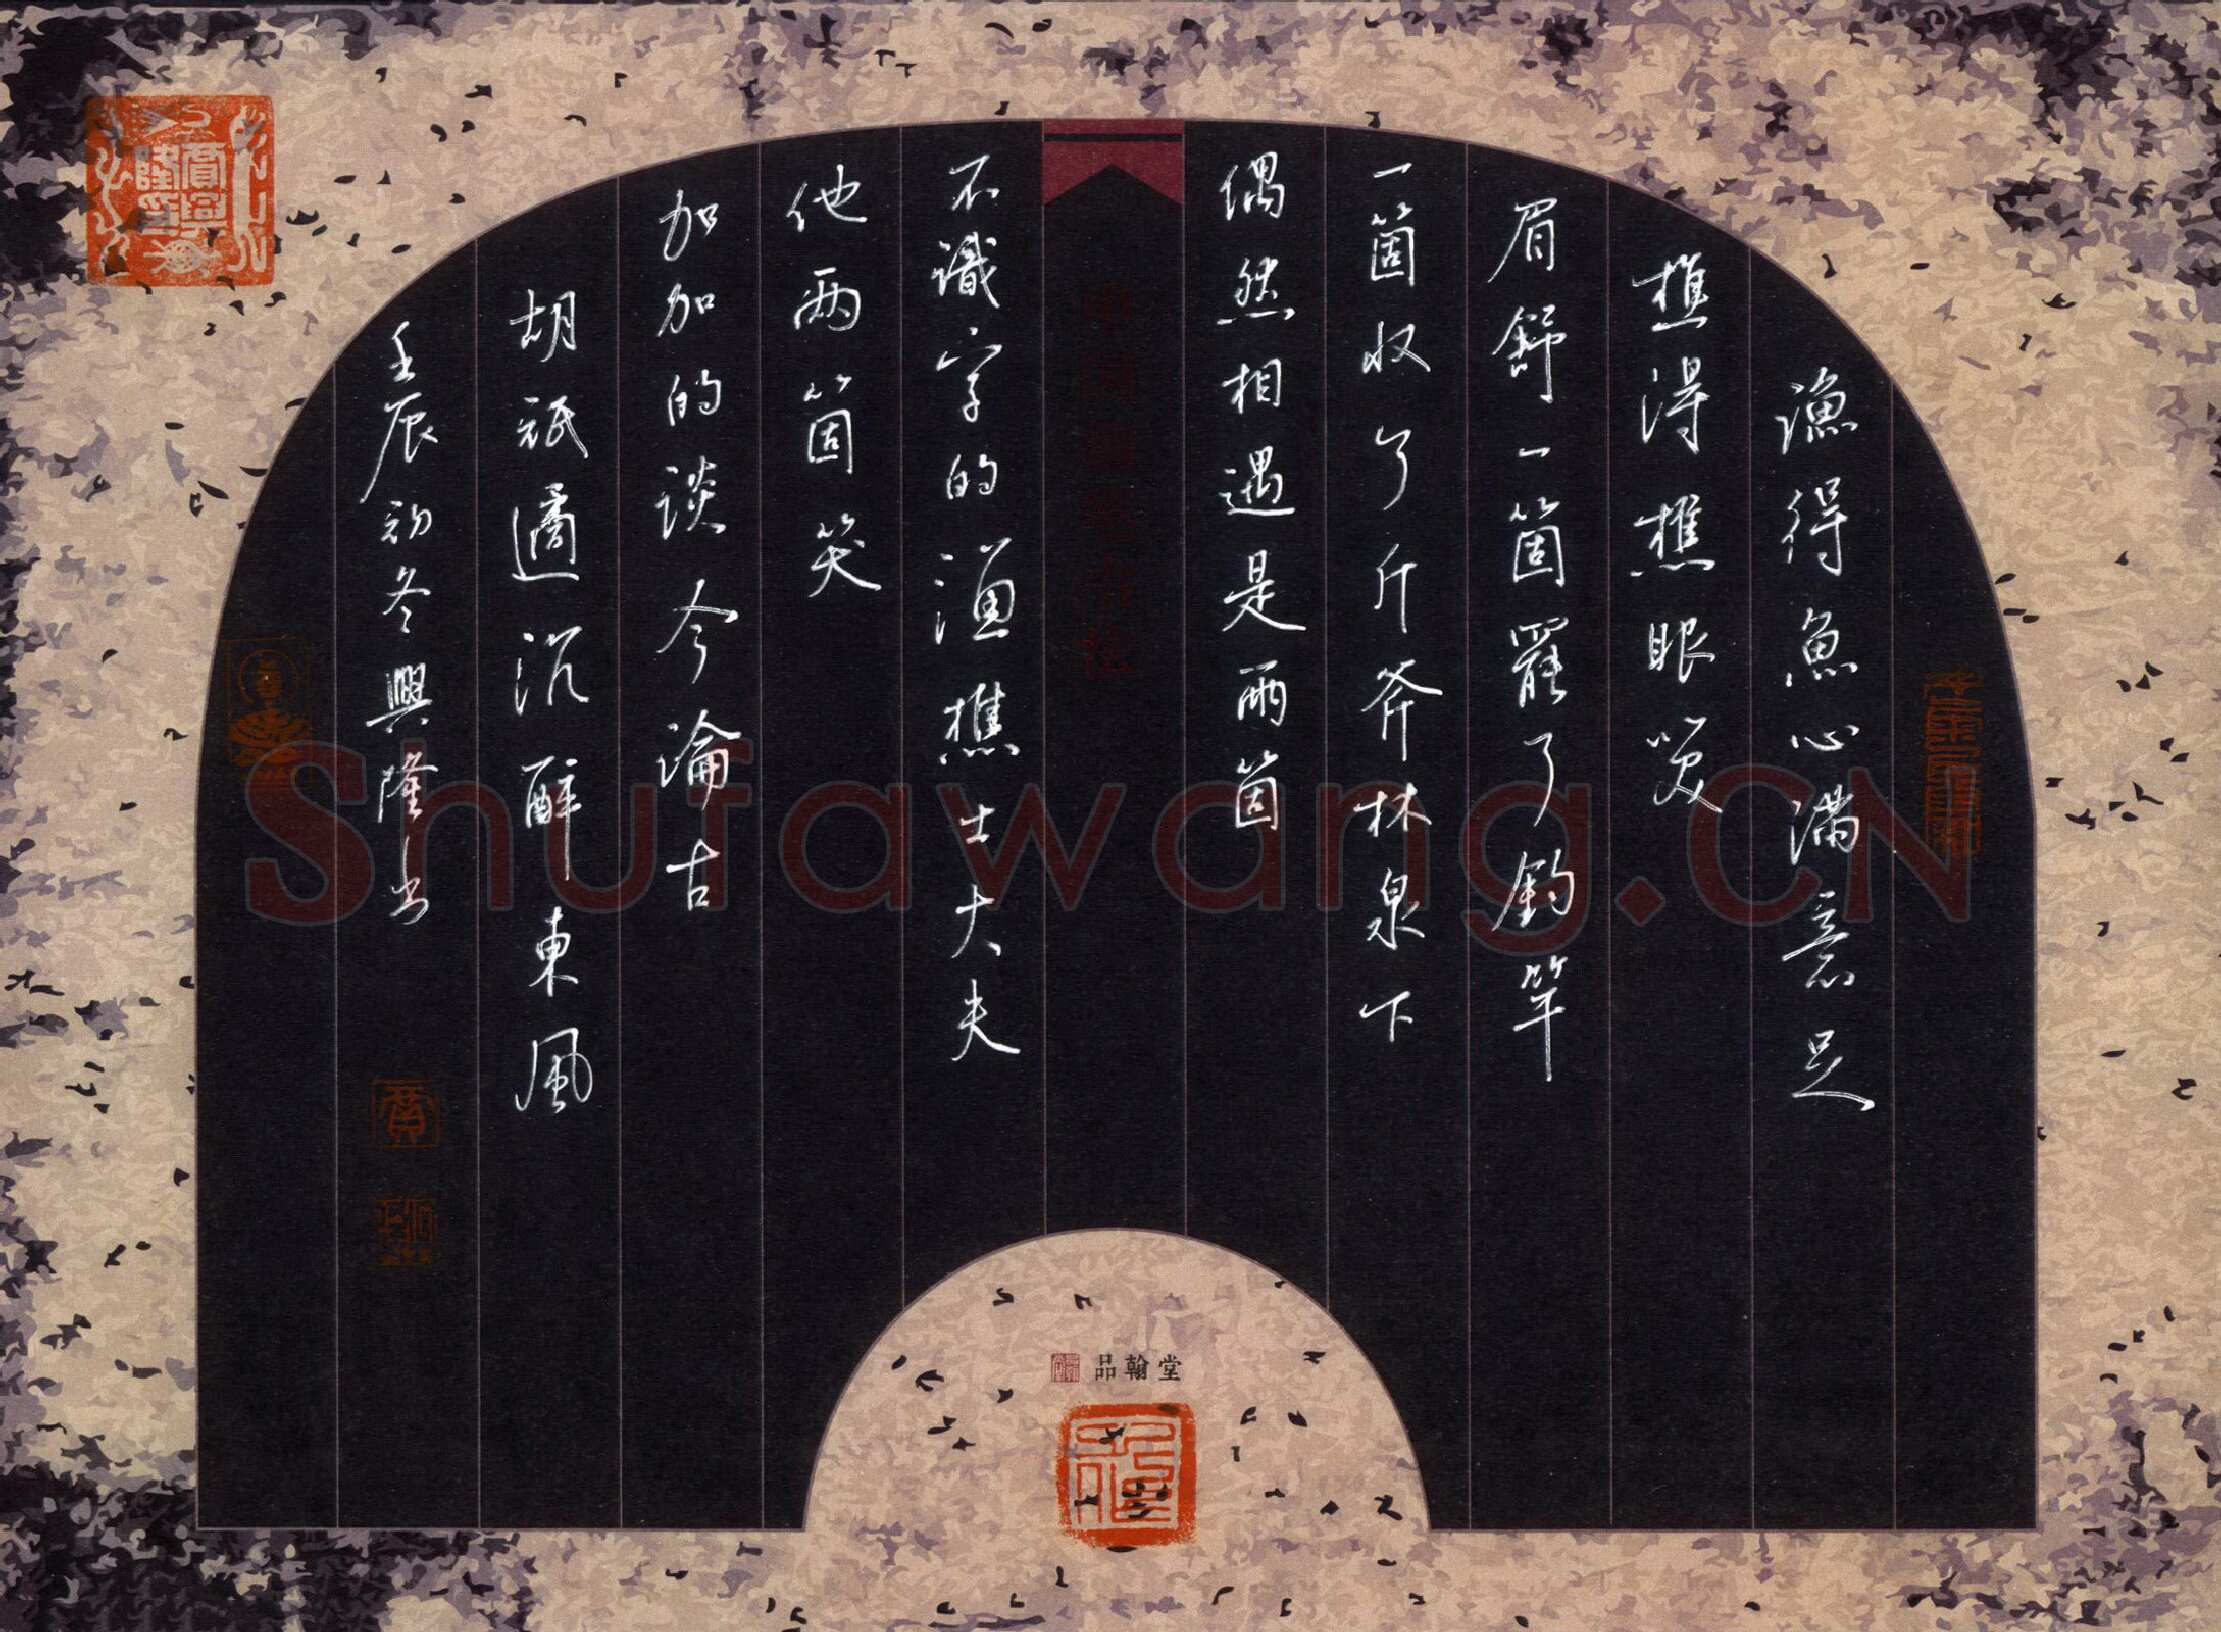 漁得魚心滿意足
樵得樵眼笑
眉舒一箇罷了釣竿
一箇收了斤斧林泉下
偶然相遇是兩箇
不識字的漁樵士大夫
他两箇笑
加加的談今論古
胡祇遹沉醉東風
壬辰初冬興隆书
賈
品翰堂
Shufawang.CN